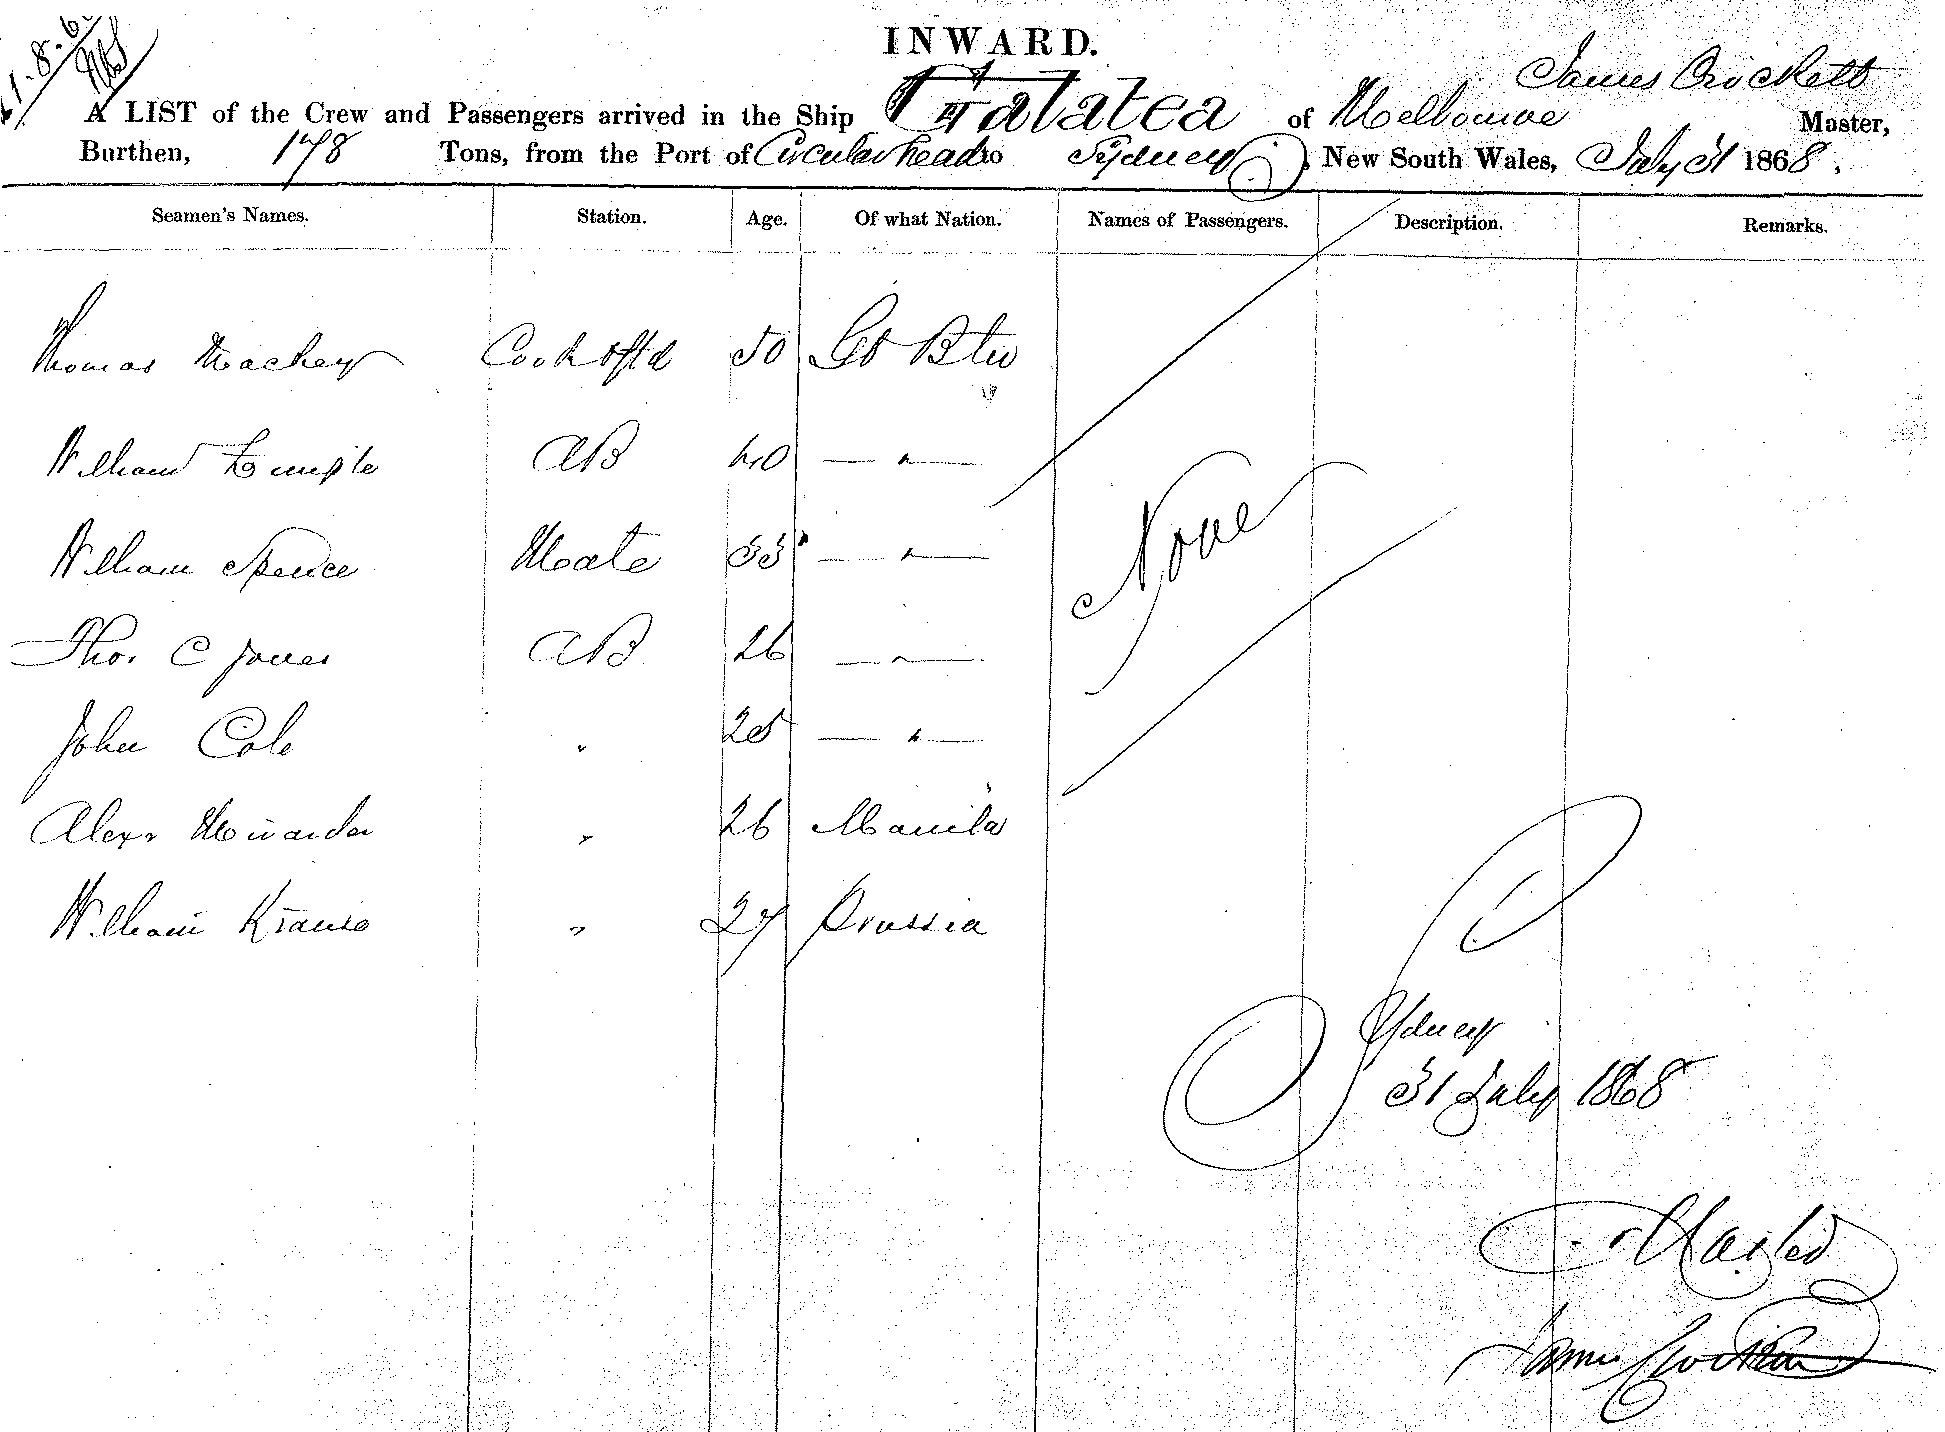 1.8.6
INWARD.
James Crockett
A LIST of the Crew and Passengers arrived in the Ship Galatea of Melbourne Master,
Burthen, 178 Tons, from the Port of Circular head to Sydney, New South Wales, July 31 1868.
Seamen's Names. Station. Age. Of what Nation. Names of Passengers. Description. Remarks.
Thomas Mackey Cook & Std 50 Gt Btn
William Temple AB 40 — " —
William Spence Mate 33 — " —
Thos. C Jones AB 26 — " —
None
John Cole " 25 — " —
Alexr Miranda " 26 Manila
William Krause " 27 Prussia
Sydney
31 July 1868
Master
James Crockett